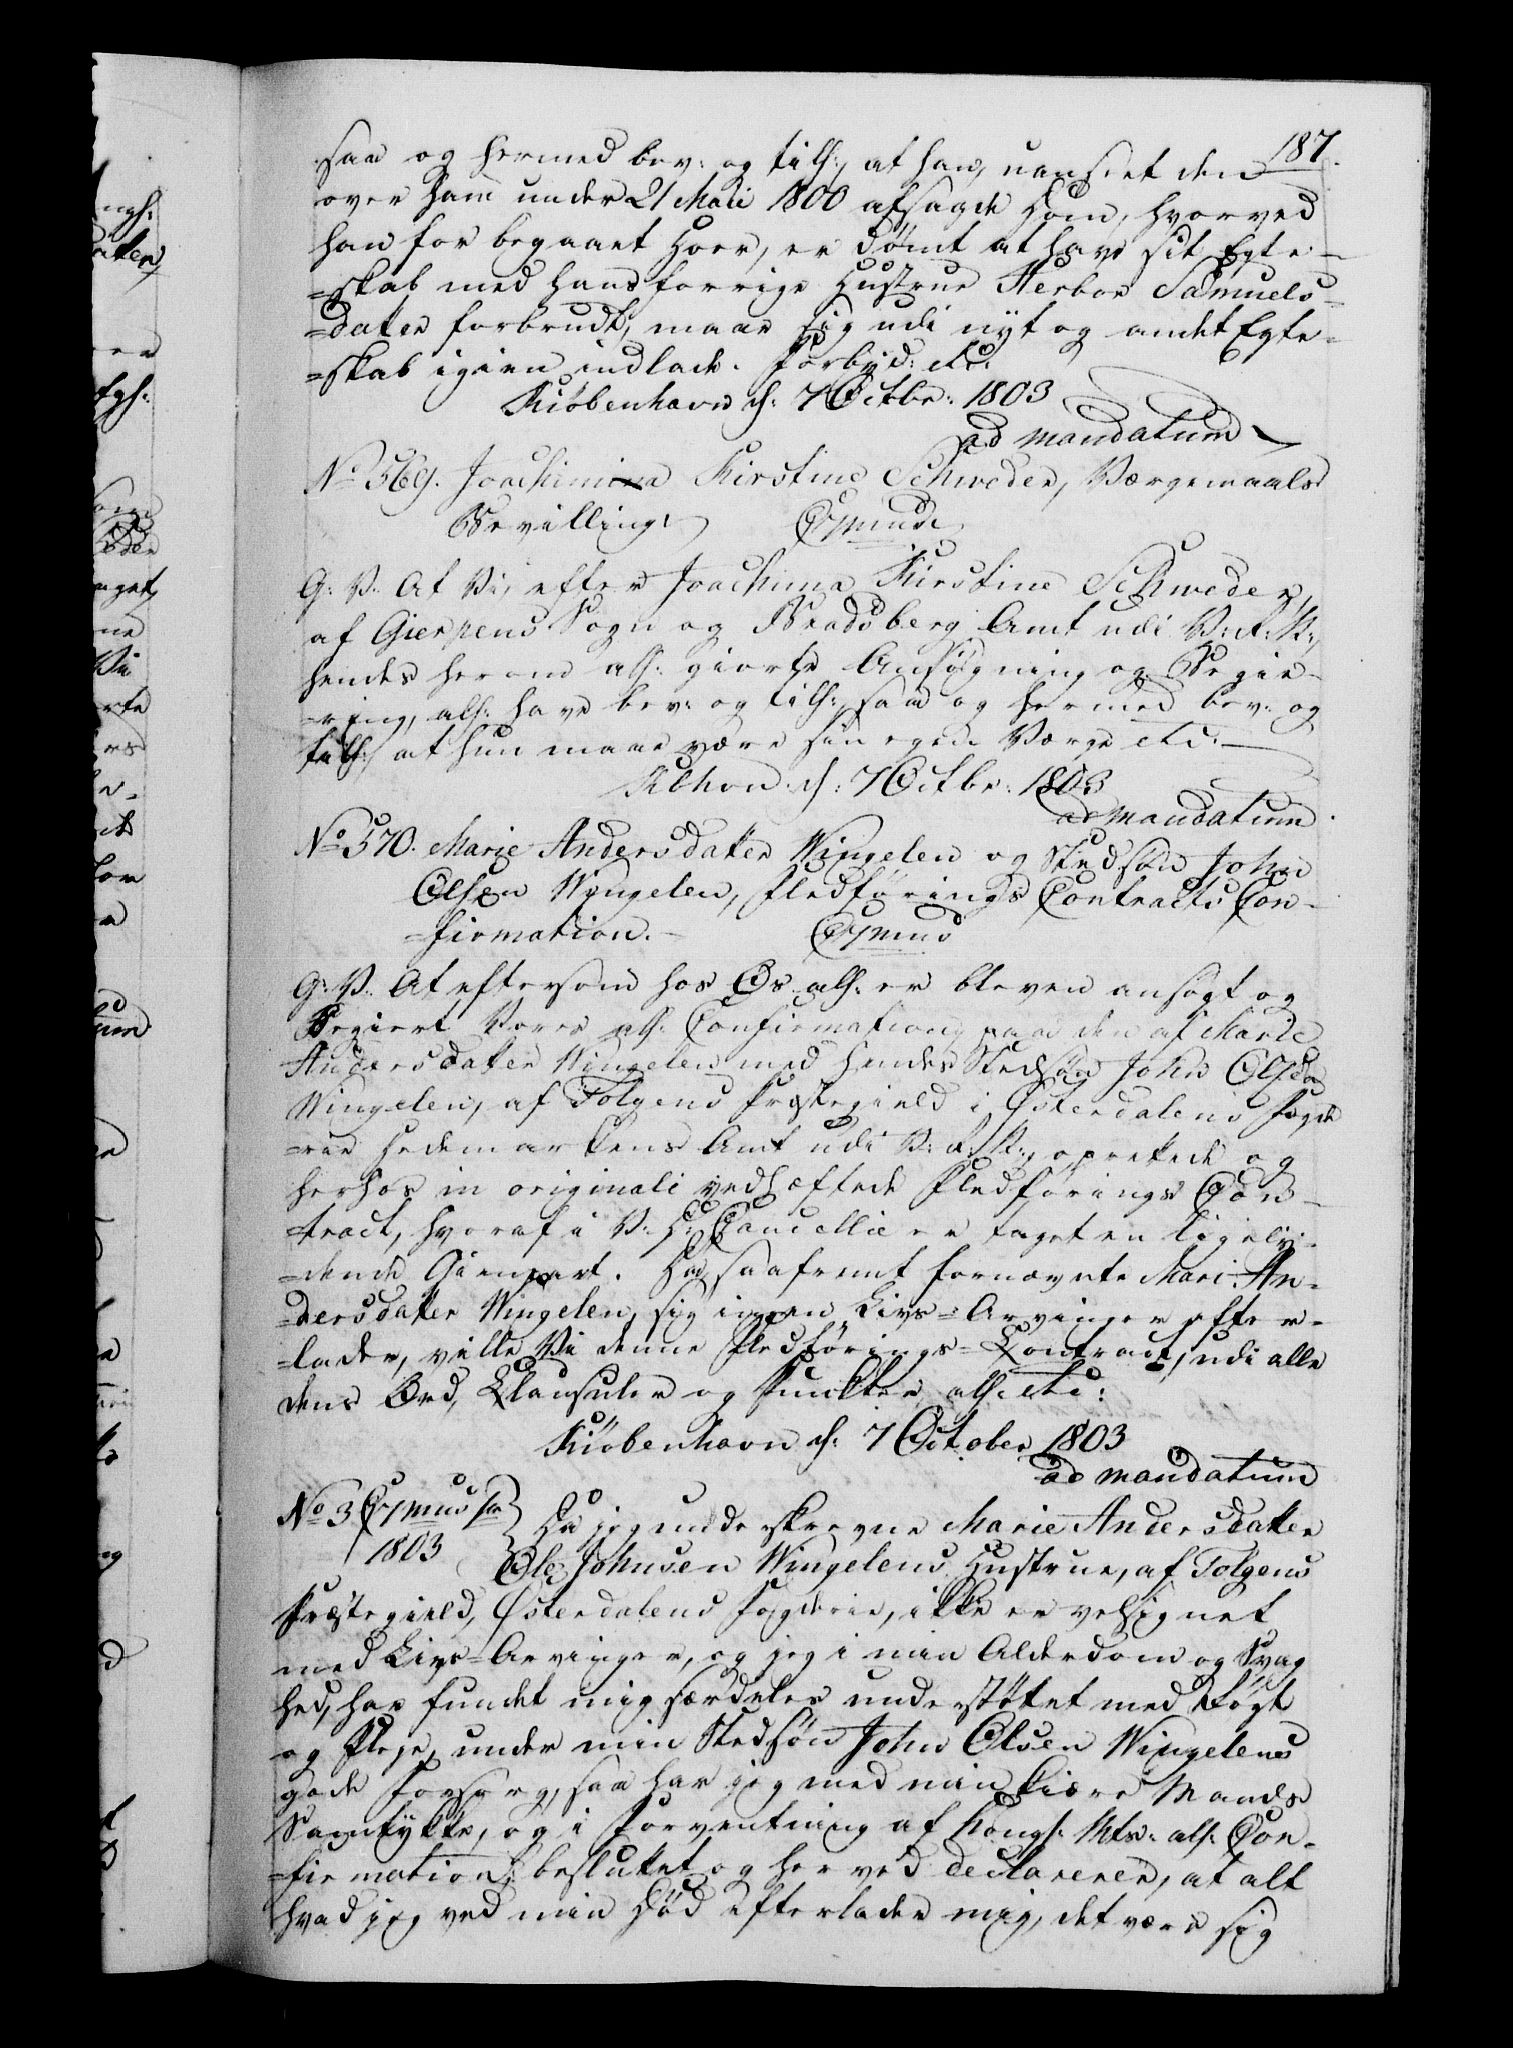 187.
saa og hermed bev: og till:, at han, uanseet den
over ham under 21 Maii 1800 afsagde Dom, hvorved
han for begaaet Hoer, er dømt at have sit Egte-
=skab med hans forrige Hustrue Herbor Samuels-
=datter forbrudt, maae sig udi nyt og andet Egte-
=skab igien indlade. Forbyd: etc:
Kiøbenhavn d: 7 Octbr: 1803
ad mandatum
No 569. Joachimina Kirstine Schweder, Værgemaals
Bevilling.
G: V: At Vi, efter Joachima Kirstine Schweder,
af Gierpens Sogn og Bradsberg Amt udi V: R: N:,
hendes herom all: giorte Ansøgning og Begie-
=ring, all: have bev: og till:, saa og hermed bev: og
till:, at hun maae være sin egen Værge etc:
Kbhvn: d: 7 Octbr: 1803
ad mandatum
No 570. Marie Andersdatter Vingelen og Stedsøn John
Olsen Vingelen, Fledførings Contracts Con-
=firmation.
G: V: At eftersom hos Os all: er bleven ansøgt og
Begiert Vores all: Confirmation paa den af Marie
Andersdatter Vingelen med hendes Stedsøn John Olsen
Vingelen, af Tolgens Præstegield i Østerdalens Fogde
=rie Hedemarkens Amt udi V: R: N:, oprettede og
herhos in originali vedhæftede Fledførings Con-
tract, hvoraf i V: D: Cancellie er taget en ligely-
=dende Gienpart. Da, saafremt fornævnte Mari An-
=dersdatter Vingelen, sig ingen Livs=Arvinger efter-
=lader, ville Vi denne Fledførings=Contract, udi alle
dens Ord, Clausuler og Puncter, all: etc:
Kiøbenhavn d: 7 October 1803
ad mandatum
No 3
1803
Da jeg underskrevne Marie Andersdatter
Ole Johnsen Vingelens Hustrue, af Tolgens
Præstegield, Østerdalens Fogderie, ikke er velsignet
med Livs=Arvinger, og jeg i min Alderdom og Svag
hed, har fundet mig særdeles understøttet med Røgt
og Pleje, under min Stedsøn John Olsen Vingelens
gode Forsorg, saa har jeg med min kiære Mands
Samtykke, og i Forventning af Kongl: Mts: all: Con-
=firmation, besluttet og herved declarerer, at alt
hvad jeg ved min Død efterlader mig, det være sig